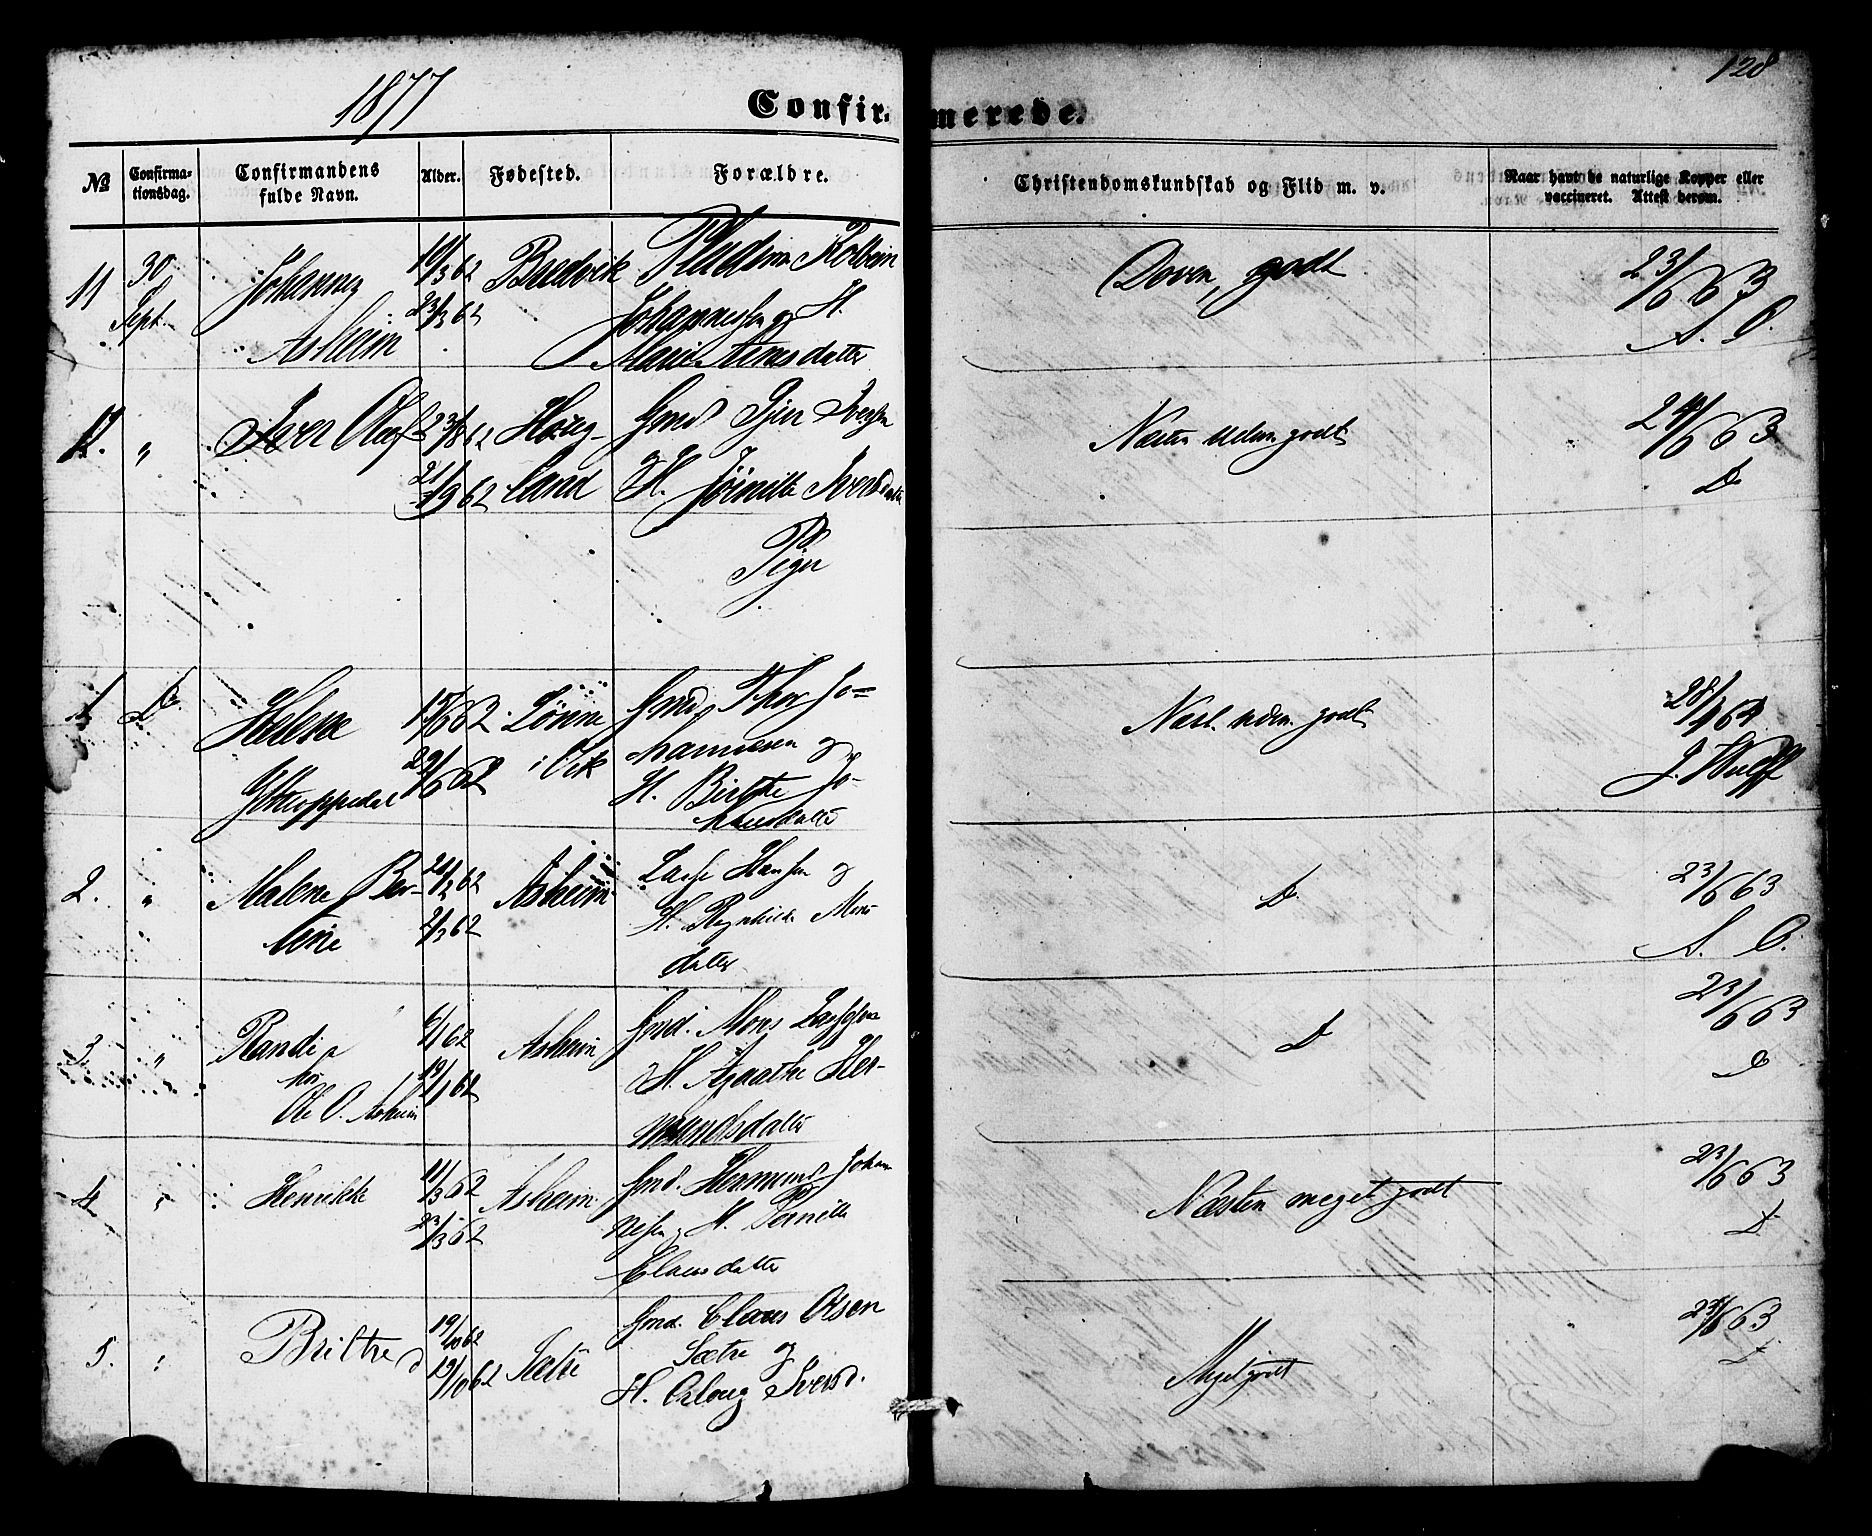 1877
128
Confirmerede.
No
Confirma-
tionsdag.
Confirmandens
fulde Navn.
Alder.
Fødested.
Forældre.
Christendomskundskab og Flid m. v.
Naar havt de naturlige Kopper eller
vaccineret. Attest herom.
11
30
Sept.
Johannes
Asheim
23/3 62
Bredvik
Kolbein
Johannessen og H.
Marie Arnesdatter
Doven, godt
23/6 63
12.
"
Iver Olaf
23/8 62
21/9 62
Houg-
land
Gmd Iversen
og H. Iversdatter
Næsten uden godt
24/6 63
Do
Piger
1
Do
Helene
Ytteroppedal
29/6 62
Lønne
i Vik
Gmd. Thor Jo=
hannesen og
H. Birthe Jo-
hansdatter
Næst. uden godt
28/4 64
J. Wulff
2.
"
Malene Ber-
tine
2/3 62
Asheim
Lasse Hansen og
H. Ragnhilde Mons
datter
Do
23/6 63
3.
"
Randi
hos
Ole O. Asheim
6/1 62
19/1 62
Asheim
Gmd. Mons Lassesen
og H. Agaathe Her-
mundsdatter
Do
23/6 63
Do
4
"
Henrikke
11/3 62
23/3 62
Asheim
Gmd. Hermund Johan
nesen og H. Pernille
Clausdatter
Næsten meget godt
23/6 63
Do
5.
"
Brithe
19/10 62
Sætre
Gmd. Claus Olsen
Sætre og
H. Oslaug Iversd.
Meget godt
23/6 63
Do